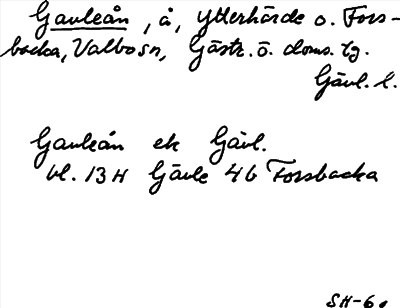 Gauleån, å, Ytterhärde o. Fors-
backa, Valbo sn, Gästr. ö. doms. tg.
Gävl. l.
Gauleån ek Gävl.
bl. 13H Gävle 4b Forsbacka
SH-60